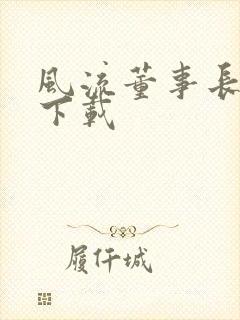 風流董事長
下載
履仟城